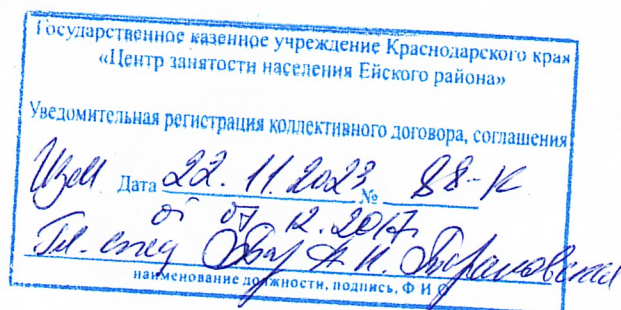 Государственное казенное учреждение Краснодарского края
«Центр занятости населения Ейского района»
Уведомительная регистрация коллективного договора, соглашения
Изм Дата 22.11.2023 № 88-К
от 07.12.2017.
Гл. спец А.Н.
наименование должности, подпись, Ф И О